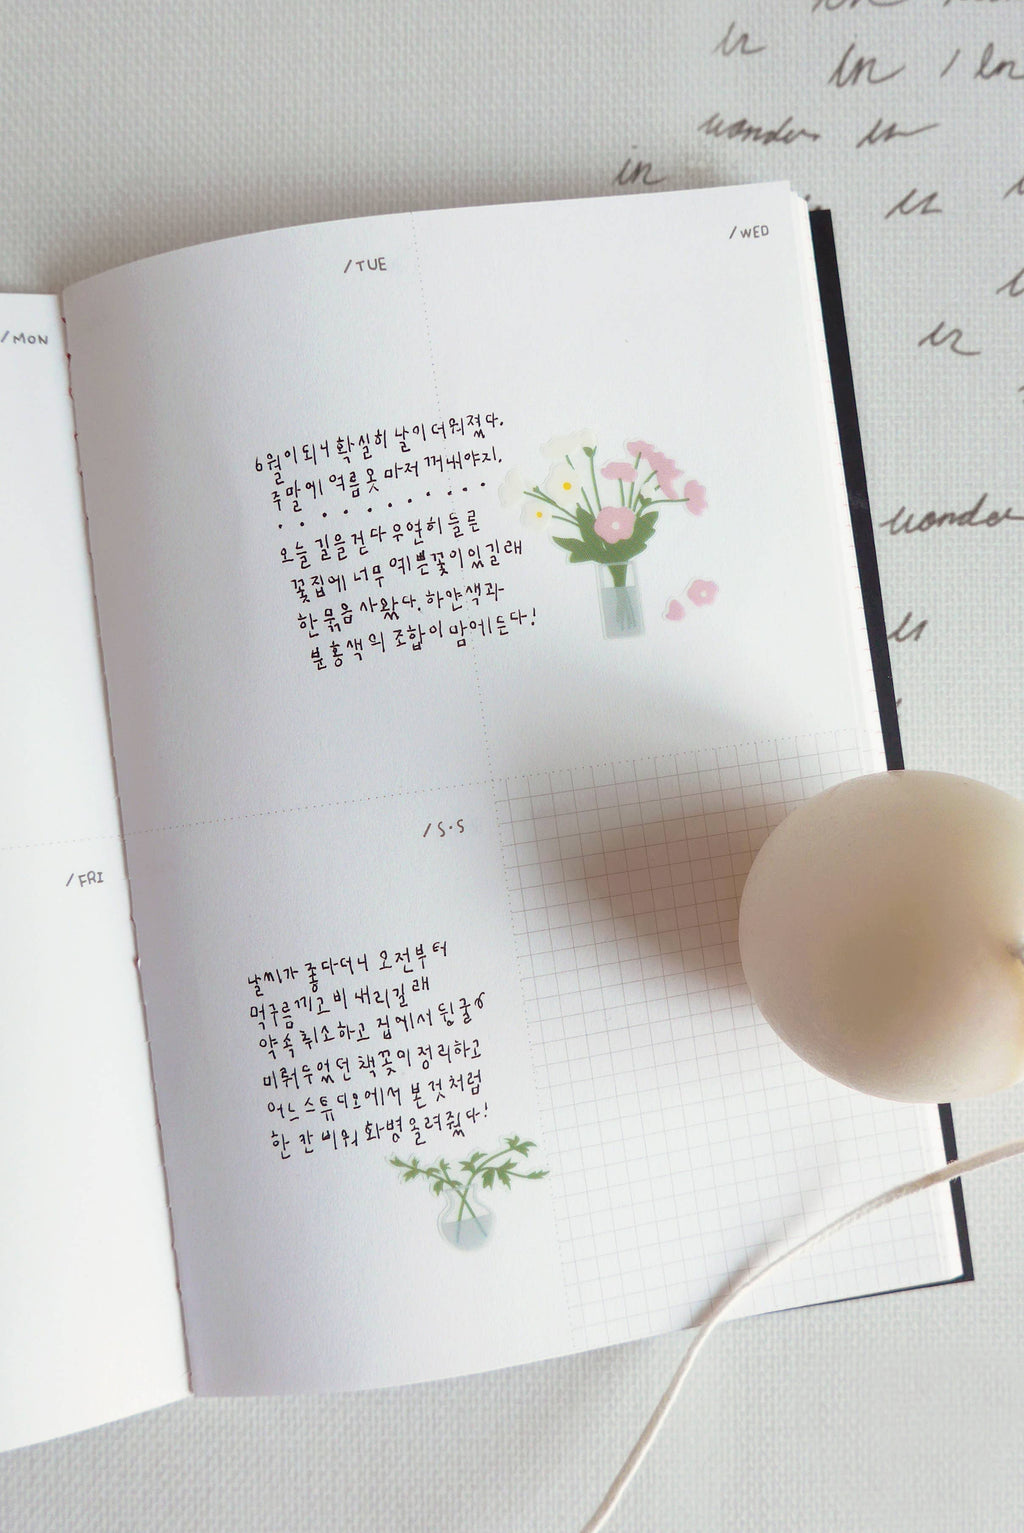 in
/ln
wonder
in
/MON
/TUE
/WED
6월이 되니 확실히 날이 더워졌다.
주말에 여름옷 마저 꺼내야지.
오늘 길을 걷다 우연히 들른
꽃집에 너무 예쁜 꽃이 있길래
한 묶음 사왔다. 하얀색과
분홍색의 조합이 맘에 든다!
wonder
/FRI
/S·S
날씨가 좋다더니 오전부터
먹구름 끼고 비 내리길래
약속 취소하고 집에서 뒹굴
미뤄두었던 책꽂이 정리하고
어느 스튜디오에서 본 것처럼
한 칸 비워 화병 올려줬다!